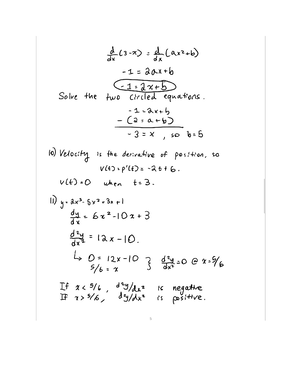 d/dx (3-x) = d/dx (ax²+b)
-1 = 2ax+b
-1 = 2x+b
Solve the two circled equations.
-1 = 2x+b
- (2 = a+b)
-3 = x, so b=5
10) Velocity is the derivative of position, so
v(t) = p'(t) = -2t+6.
v(t)=0 when t=3.
11) y=2x³-5x²+3x+1
dy/dx = 6x²-10x+3
d²y/dx² = 12x-10.
↳ 0 = 12x-10
5/6 = x
d²y/dx²=0 @ x=5/6
If x < 5/6, d²y/dx² is negative
If x > 5/6, d²y/dx² is positive.